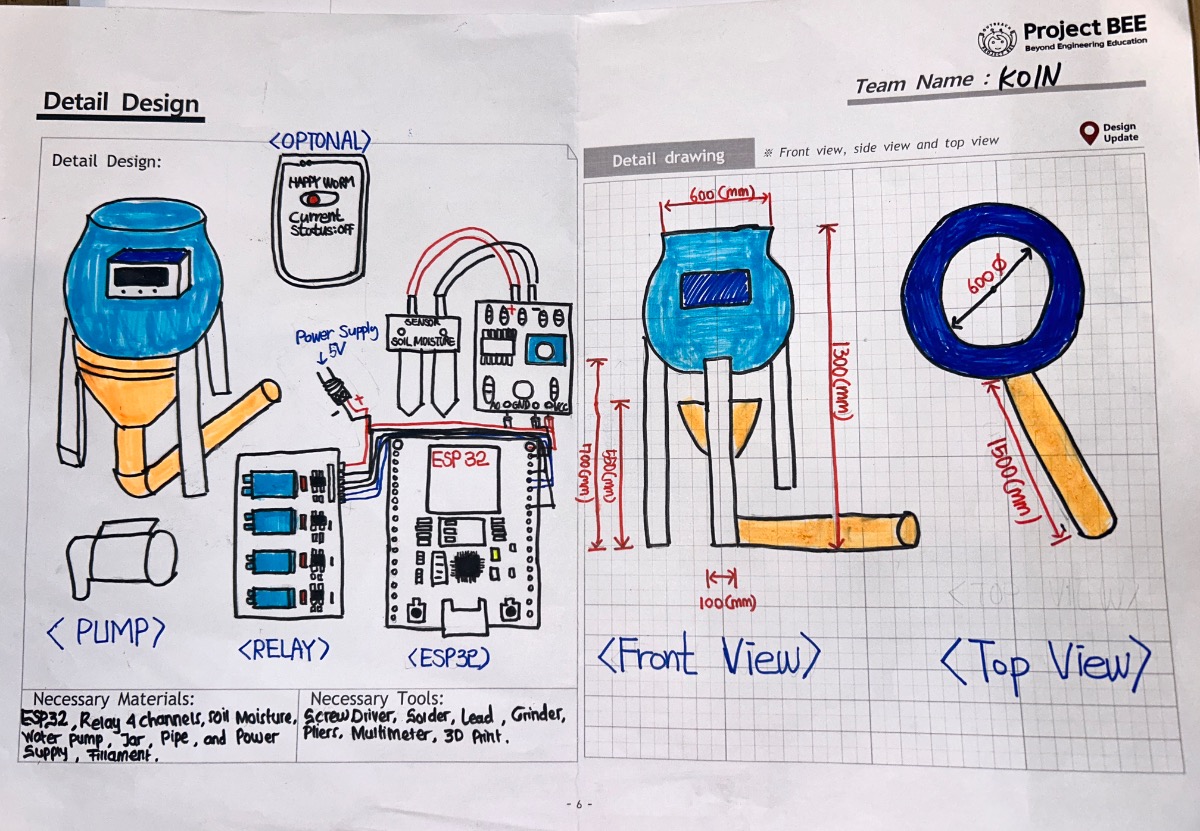 Project BEE
Beyond Engineering Education
Team Name : KOIN
Detail Design
Detail Design:
<OPTONAL>
HAPPY WORM
Current
Status:OFF
Power Supply
5V
+
SENSOR
SOIL MOISTURE
+ -
AO GND VCC
ESP 32
<PUMP>
<RELAY>
<ESP32>
Necessary Materials:
ESP32, Relay 4 channels, soil Moisture,
Water pump, Jar, Pipe, and Power
Supply, Fillament.
Necessary Tools:
ScrewDriver, Solder, Lead, Grinder,
Pliers, Multimeter, 3D Print.
Design
Update
Detail drawing
※ Front view, side view and top view
600(mm)
1300(mm)
700(mm)
100(mm)
600Φ
1500(mm)
<Top View>
<Front View>
<Top View>
- 6 -